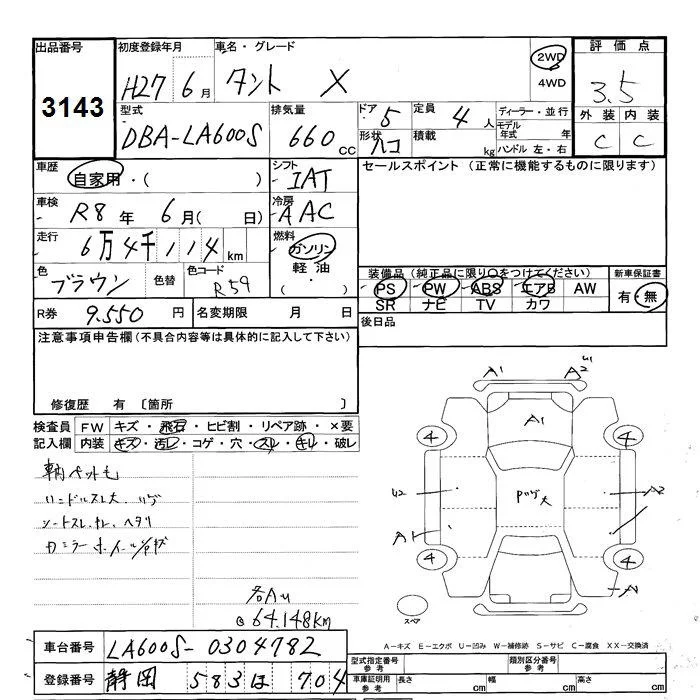 出品番号
3143
初度登録年月
H27 6月
車名・グレード
タント X
2WD
4WD
評価点
3.5
外装 内装
C C
型式
DBA-LA600S
排気量
660cc
ドア 5
形状 ハコ
定員 4人
積載 kg
ディーラー・並行
モデル年式 年
ハンドル 左・右
車歴
自家用・( )
シフト
IAT
セールスポイント (正常に機能するものに限ります)
車検
R8年 6月( 日)
冷房
AAC
走行
6万4千114km
燃料
ガソリン
軽油・( )
色
ブラウン
色替
色コード
R59
装備品(純正品に限り○をつけてください)
PS PW ABS エアB AW
SR ナビ TV カワ
新車保証書
有・無
R券 9.550円
名変期限 月 日
後日品
注意事項申告欄(不具合内容等は具体的に記入して下さい)
修復歴 有 〔箇所 〕
検査員記入欄
FW キズ・飛石・ヒビ割・リペア跡・×要
内装 キズ・汚レ・コゲ・穴・スレ・キレ・破レ
ハンドルスレ大
シートスレ, ヘタリ
64.148km
A1 A2
A1
4 4
U2 A2
A1
4 4
スペア
A-キズ E-エクボ U-凹み W-補修跡 S-サビ C-腐食 XX-交換済
車台番号 LA600S-0304782
登録番号 静岡 583 は 704
型式指定番号 参考
類別区分番号 参考
車庫証明用 参考
長さ cm 幅 cm 高さ cm